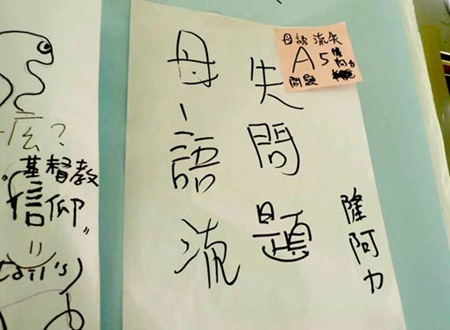 么?
"基督教
信仰"
=
母語流
失問題
隆阿力
母語流失
A5
問題
隆阿力